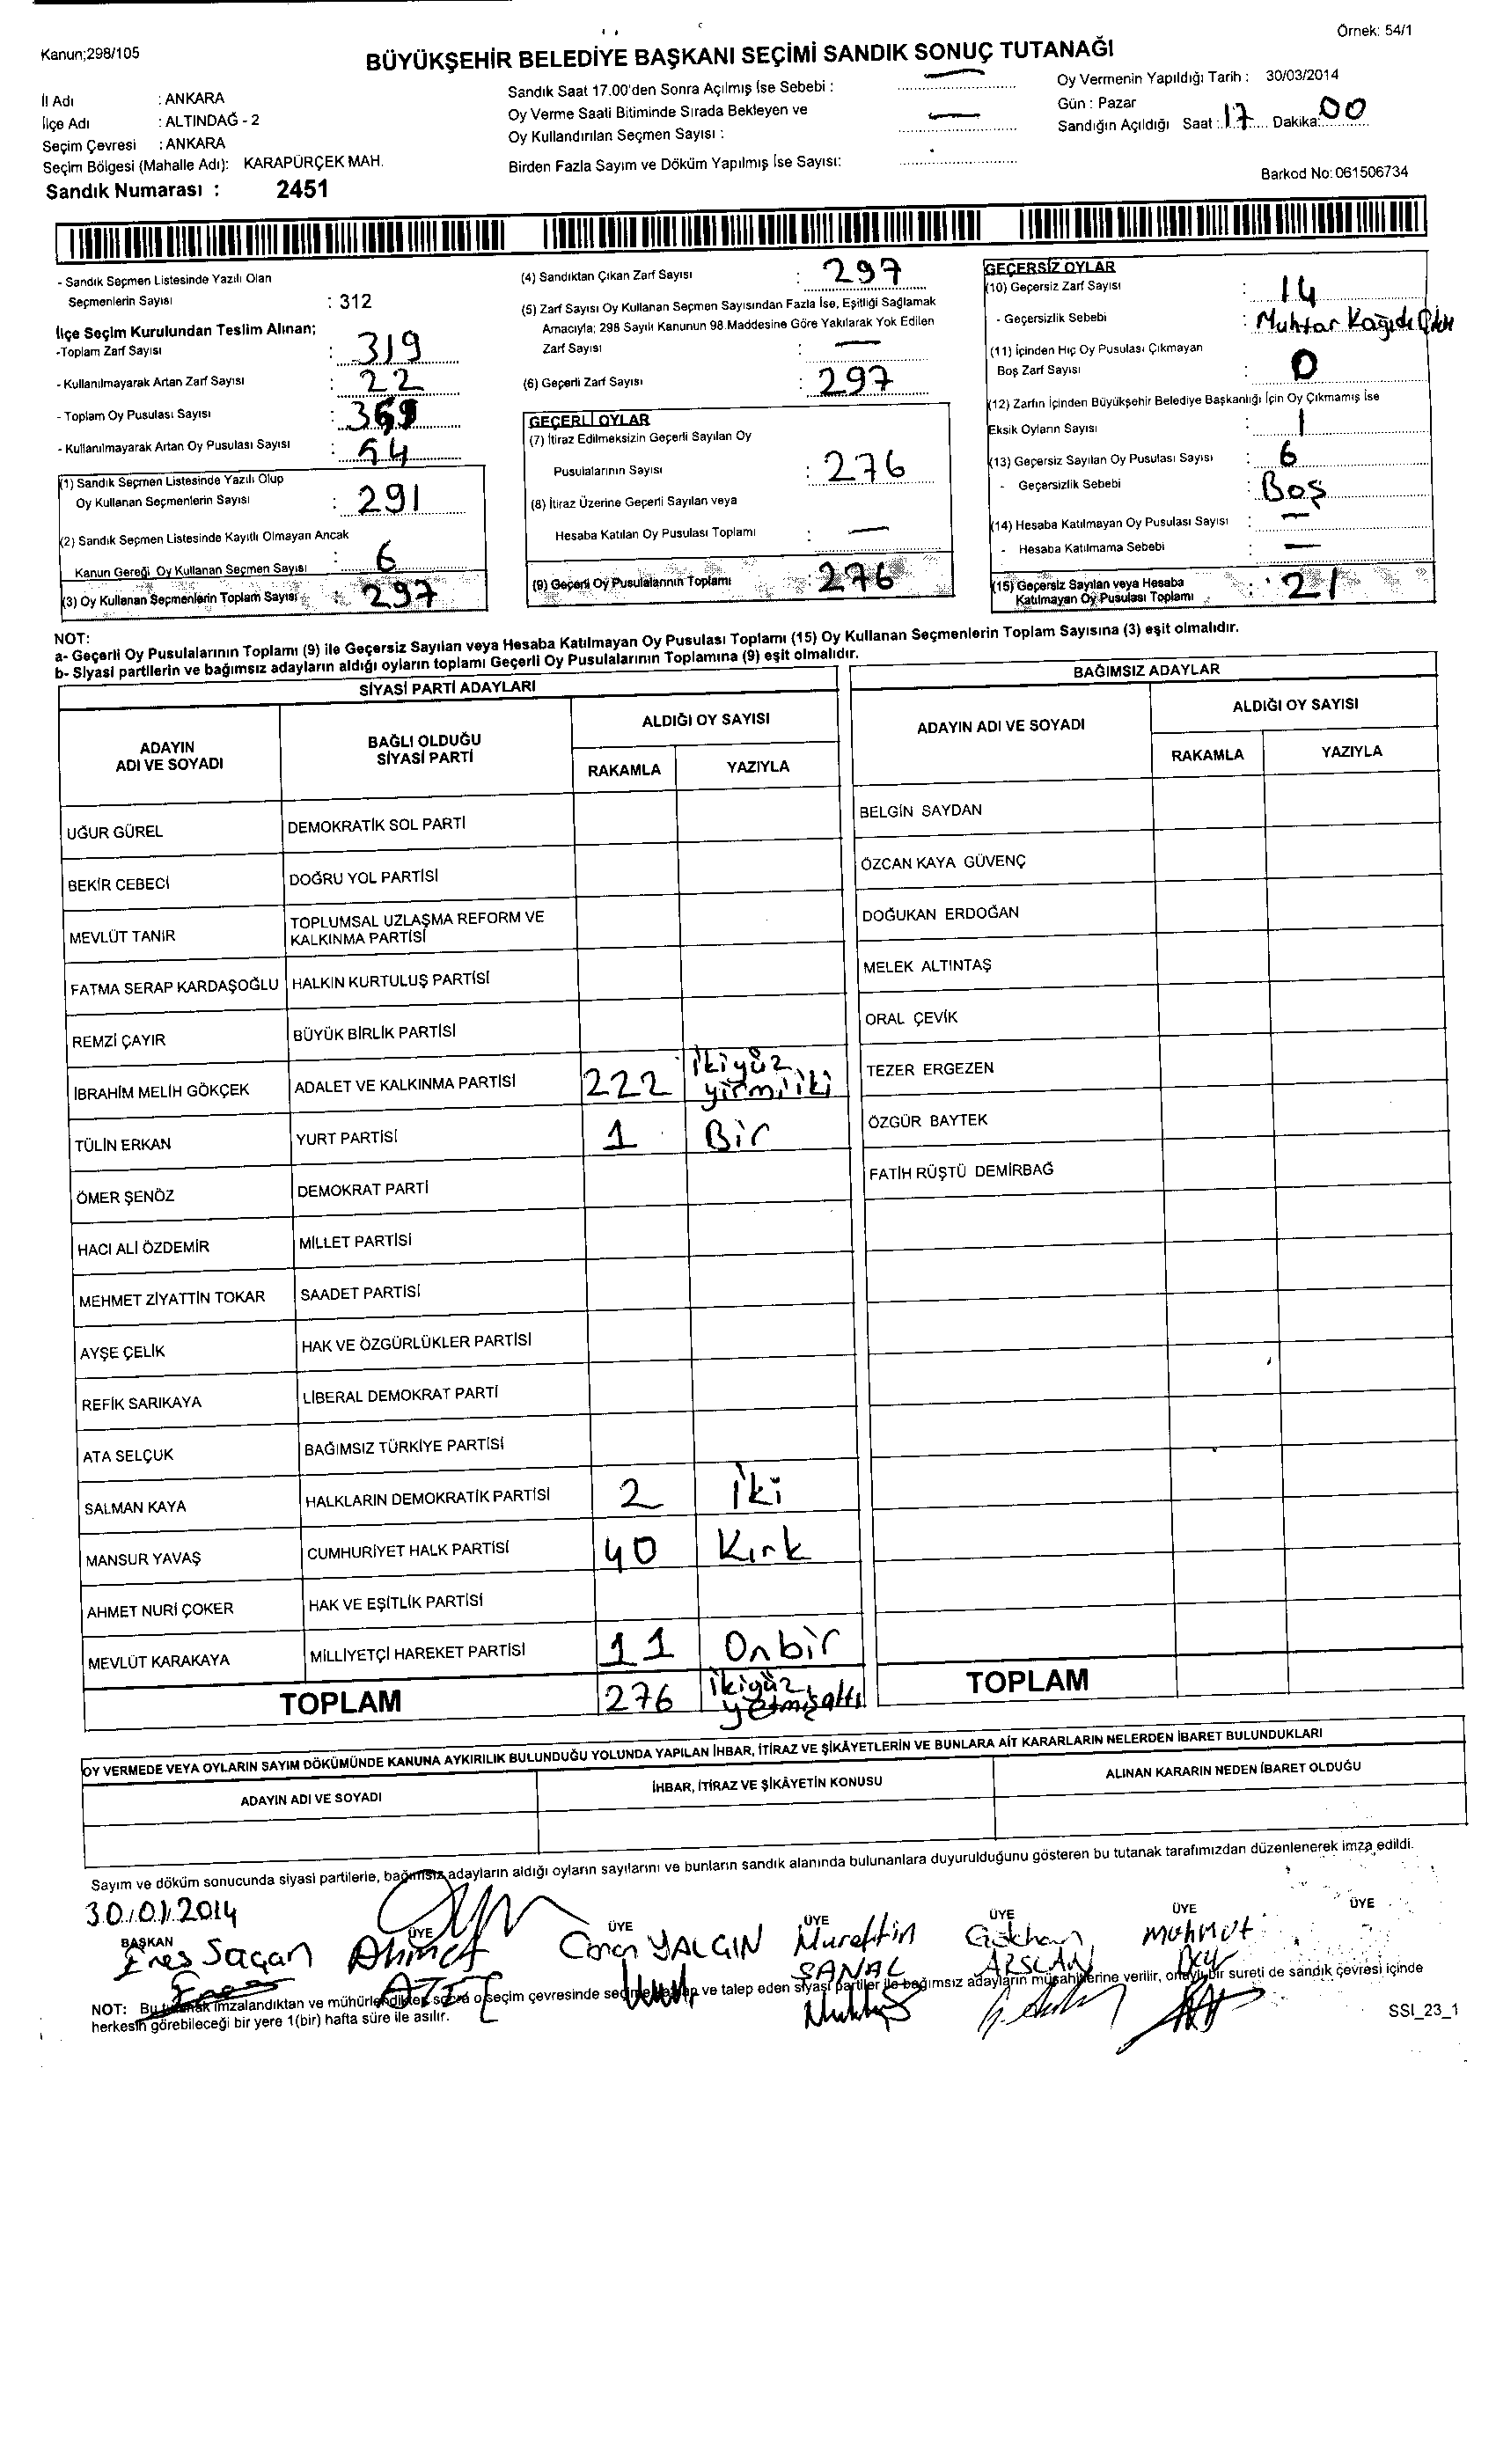 Örnek: 54/1
Kanun;298/105
BÜYÜKŞEHİR BELEDİYE BAŞKANI SEÇİMİ SANDIK SONUÇ TUTANAĞI
İl Adı : ANKARA
İlçe Adı : ALTINDAĞ - 2
Seçim Çevresi : ANKARA
Seçim Bölgesi (Mahalle Adı): KARAPÜRÇEK MAH.
Sandık Numarası : 2451
Sandık Saat 17.00'den Sonra Açılmış İse Sebebi : —
Oy Verme Saati Bitiminde Sırada Bekleyen ve
Oy Kullandırılan Seçmen Sayısı : —
Birden Fazla Sayım ve Döküm Yapılmış İse Sayısı:
Oy Vermenin Yapıldığı Tarih : 30/03/2014
Gün : Pazar
Sandığın Açıldığı Saat : 17 Dakika: 00
Barkod No: 061506734
- Sandık Seçmen Listesinde Yazılı Olan
Seçmenlerin Sayısı : 312
İlçe Seçim Kurulundan Teslim Alınan;
-Toplam Zarf Sayısı : 319
- Kullanılmayarak Artan Zarf Sayısı : 22
- Toplam Oy Pusulası Sayısı :
- Kullanılmayarak Artan Oy Pusulası Sayısı : 54
(1) Sandık Seçmen Listesinde Yazılı Olup
Oy Kullanan Seçmenlerin Sayısı : 291
(2) Sandık Seçmen Listesinde Kayıtlı Olmayan Ancak
Kanun Gereği Oy Kullanan Seçmen Sayısı : 6
(3) Oy Kullanan Seçmenlerin Toplam Sayısı : 297
(4) Sandıktan Çıkan Zarf Sayısı : 297
(5) Zarf Sayısı Oy Kullanan Seçmen Sayısından Fazla İse, Eşitliği Sağlamak
Amacıyla; 298 Sayılı Kanunun 98.Maddesine Göre Yakılarak Yok Edilen
Zarf Sayısı : —
(6) Geçerli Zarf Sayısı : 297
GEÇERLİ OYLAR
(7) İtiraz Edilmeksizin Geçerli Sayılan Oy
Pusulalarının Sayısı : 276
(8) İtiraz Üzerine Geçerli Sayılan veya
Hesaba Katılan Oy Pusulası Toplamı : —
(9) Geçerli Oy Pusulalarının Toplamı : 276
GEÇERSİZ OYLAR
(10) Geçersiz Zarf Sayısı : 14
- Geçersizlik Sebebi : Muhtar Kağıdı
(11) İçinden Hiç Oy Pusulası Çıkmayan
Boş Zarf Sayısı : 0
(12) Zarfın İçinden Büyükşehir Belediye Başkanlığı İçin Oy Çıkmamış İse
Eksik Oyların Sayısı : 1
(13) Geçersiz Sayılan Oy Pusulası Sayısı : 6
- Geçersizlik Sebebi : Boş
(14) Hesaba Katılmayan Oy Pusulası Sayısı : —
- Hesaba Katılmama Sebebi : —
(15) Geçersiz Sayılan veya Hesaba
Katılmayan Oy Pusulası Toplamı : 21
NOT:
a- Geçerli Oy Pusulalarının Toplamı (9) ile Geçersiz Sayılan veya Hesaba Katılmayan Oy Pusulası Toplamı (15) Oy Kullanan Seçmenlerin Toplam Sayısına (3) eşit olmalıdır.
b- Siyasi partilerin ve bağımsız adayların aldığı oyların toplamı Geçerli Oy Pusulalarının Toplamına (9) eşit olmalıdır.
SİYASİ PARTİ ADAYLARI
ADAYIN ADI VE SOYADI
BAĞLI OLDUĞU SİYASİ PARTİ
ALDIĞI OY SAYISI
RAKAMLA YAZIYLA
UĞUR GÜREL DEMOKRATİK SOL PARTİ
BEKİR CEBECİ DOĞRU YOL PARTİSİ
MEVLÜT TANIR TOPLUMSAL UZLAŞMA REFORM VE KALKINMA PARTİSİ
FATMA SERAP KARDAŞOĞLU HALKIN KURTULUŞ PARTİSİ
REMZİ ÇAYIR BÜYÜK BİRLİK PARTİSİ
İBRAHİM MELİH GÖKÇEK ADALET VE KALKINMA PARTİSİ 222 ikiyüz yirmiiki
TÜLİN ERKAN YURT PARTİSİ 1 Bir
ÖMER ŞENÖZ DEMOKRAT PARTİ
HACI ALİ ÖZDEMİR MİLLET PARTİSİ
MEHMET ZİYATTİN TOKAR SAADET PARTİSİ
AYŞE ÇELİK HAK VE ÖZGÜRLÜKLER PARTİSİ
REFİK SARIKAYA LİBERAL DEMOKRAT PARTİ
ATA SELÇUK BAĞIMSIZ TÜRKİYE PARTİSİ
SALMAN KAYA HALKLARIN DEMOKRATİK PARTİSİ 2 iki
MANSUR YAVAŞ CUMHURİYET HALK PARTİSİ 40 Kırk
AHMET NURİ ÇOKER HAK VE EŞİTLİK PARTİSİ
MEVLÜT KARAKAYA MİLLİYETÇİ HAREKET PARTİSİ 11 Onbir
TOPLAM 276 ikiyüz yetmişaltı
BAĞIMSIZ ADAYLAR
ADAYIN ADI VE SOYADI
ALDIĞI OY SAYISI
RAKAMLA YAZIYLA
BELGİN SAYDAN
ÖZCAN KAYA GÜVENÇ
DOĞUKAN ERDOĞAN
MELEK ALTINTAŞ
ORAL ÇEVİK
TEZER ERGEZEN
ÖZGÜR BAYTEK
FATİH RÜŞTÜ DEMİRBAĞ
TOPLAM
OY VERMEDE VEYA OYLARIN SAYIM DÖKÜMÜNDE KANUNA AYKIRILIK BULUNDUĞU YOLUNDA YAPILAN İHBAR, İTİRAZ VE ŞİKÂYETLERİN VE BUNLARA AİT KARARLARIN NELERDEN İBARET BULUNDUKLARI
ADAYIN ADI VE SOYADI İHBAR, İTİRAZ VE ŞİKÂYETİN KONUSU ALINAN KARARIN NEDEN İBARET OLDUĞU
Sayım ve döküm sonucunda siyasi partilerle, bağımsız adayların aldığı oyların sayılarını ve bunların sandık alanında bulunanlara duyurulduğunu gösteren bu tutanak tarafımızdan düzenlenerek imza edildi.
30.01.2014
BAŞKAN ÜYE ÜYE ÜYE ÜYE ÜYE ÜYE
Enes Saçan Ahmet YALGIN Nurettin SANAL Gökhan ARSLAN Mahmut
NOT: Bu tutanak imzalandıktan ve mühürlendikten sonra o seçim çevresinde ve talep eden siyasi partiler ile bağımsız adayların müşahitlerine verilir, onaylı bir sureti de sandık çevresi içinde
herkesin görebileceği bir yere 1(bir) hafta süre ile asılır.
SSI_23_1